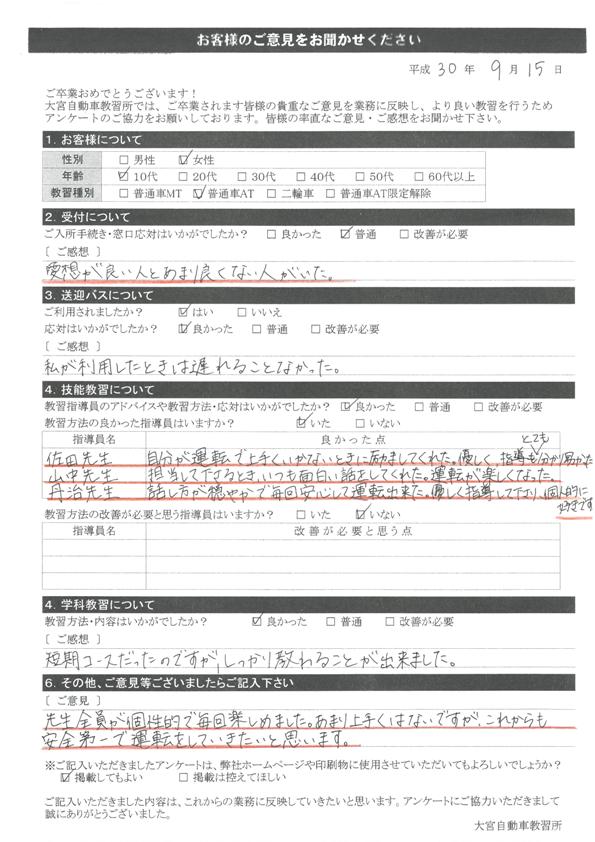 お客様のご意見をお聞かせください
平成 30 年 9 月 15 日
ご卒業おめでとうございます！
大宮自動車教習所では、ご卒業されます皆様の貴重なご意見を業務に反映し、より良い教習を行うため
アンケートのご協力をお願いしております。皆様の率直なご意見・ご感想をお聞かせ下さい。
1. お客様について
性別 □ 男性 ☑ 女性
年齢 ☑ 10代 □ 20代 □ 30代 □ 40代 □ 50代 □ 60代以上
教習種別 □ 普通車MT ☑ 普通車AT □ 二輪車 □ 普通車AT限定解除
2. 受付について
ご入所手続き・窓口応対はいかがでしたか？ □ 良かった ☑ 普通 □ 改善が必要
〔 ご感想 〕
愛想が良い人とあまり良くない人がいた。
3. 送迎バスについて
ご利用されましたか？ ☑ はい □ いいえ
応対はいかがでしたか？ ☑ 良かった □ 普通 □ 改善が必要
〔 ご感想 〕
私が利用したときは遅れることなかった。
4. 技能教習について
教習指導員のアドバイスや教習方法・応対はいかがでしたか？ ☑ 良かった □ 普通 □ 改善が必要
教習方法の良かった指導員はいますか？ ☑ いた □ いない
指導員名 良かった点
佐田先生 自分が運転で上手くいかないときに励ましてくれた。優しく指導もとても分かり易かった
山中先生 担当して下さるとき、いつも面白い話をしてくれた。運転が楽しくなった。
丹治先生 話し方が穏やかで毎回安心して運転出来た。優しく指導して下さり、個人的に好きです
教習方法の改善が必要と思う指導員はいますか？ □ いた ☑ いない
指導員名 改善が必要と思う点
4. 学科教習について
教習方法・内容はいかがでしたか？ ☑ 良かった □ 普通 □ 改善が必要
〔 ご感想 〕
短期コースだったのですが、しっかり教わることが出来ました。
6. その他、ご意見等ございましたらご記入下さい
〔 ご意見 〕
先生全員が個性的で毎回楽しめました。あまり上手くはないですが、これからも
安全第一で運転をしていきたいと思います。
※ご記入いただきましたアンケートは、弊社ホームページや印刷物に使用させていただいてもよろしいでしょうか？
☑ 掲載してもよい □ 掲載は控えてほしい
ご記入いただきました内容は、これからの業務に反映していきたいと思います。アンケートにご協力いただきまして
誠にありがとうございました。
大宮自動車教習所